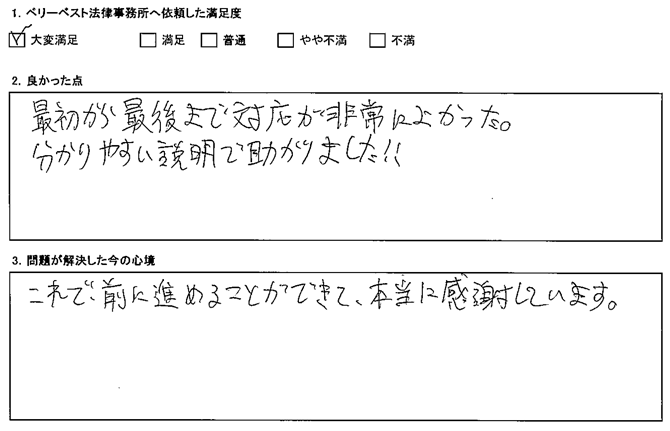 1. ベリーベスト法律事務所へ依頼した満足度
☑ 大変満足 □ 満足 □ 普通 □ やや不満 □ 不満
2. 良かった点
最初から最後まで対応が非常によかった。
分かりやすい説明で助かりました!!
3. 問題が解決した今の心境
これで前に進めることができて、本当に感謝しています。